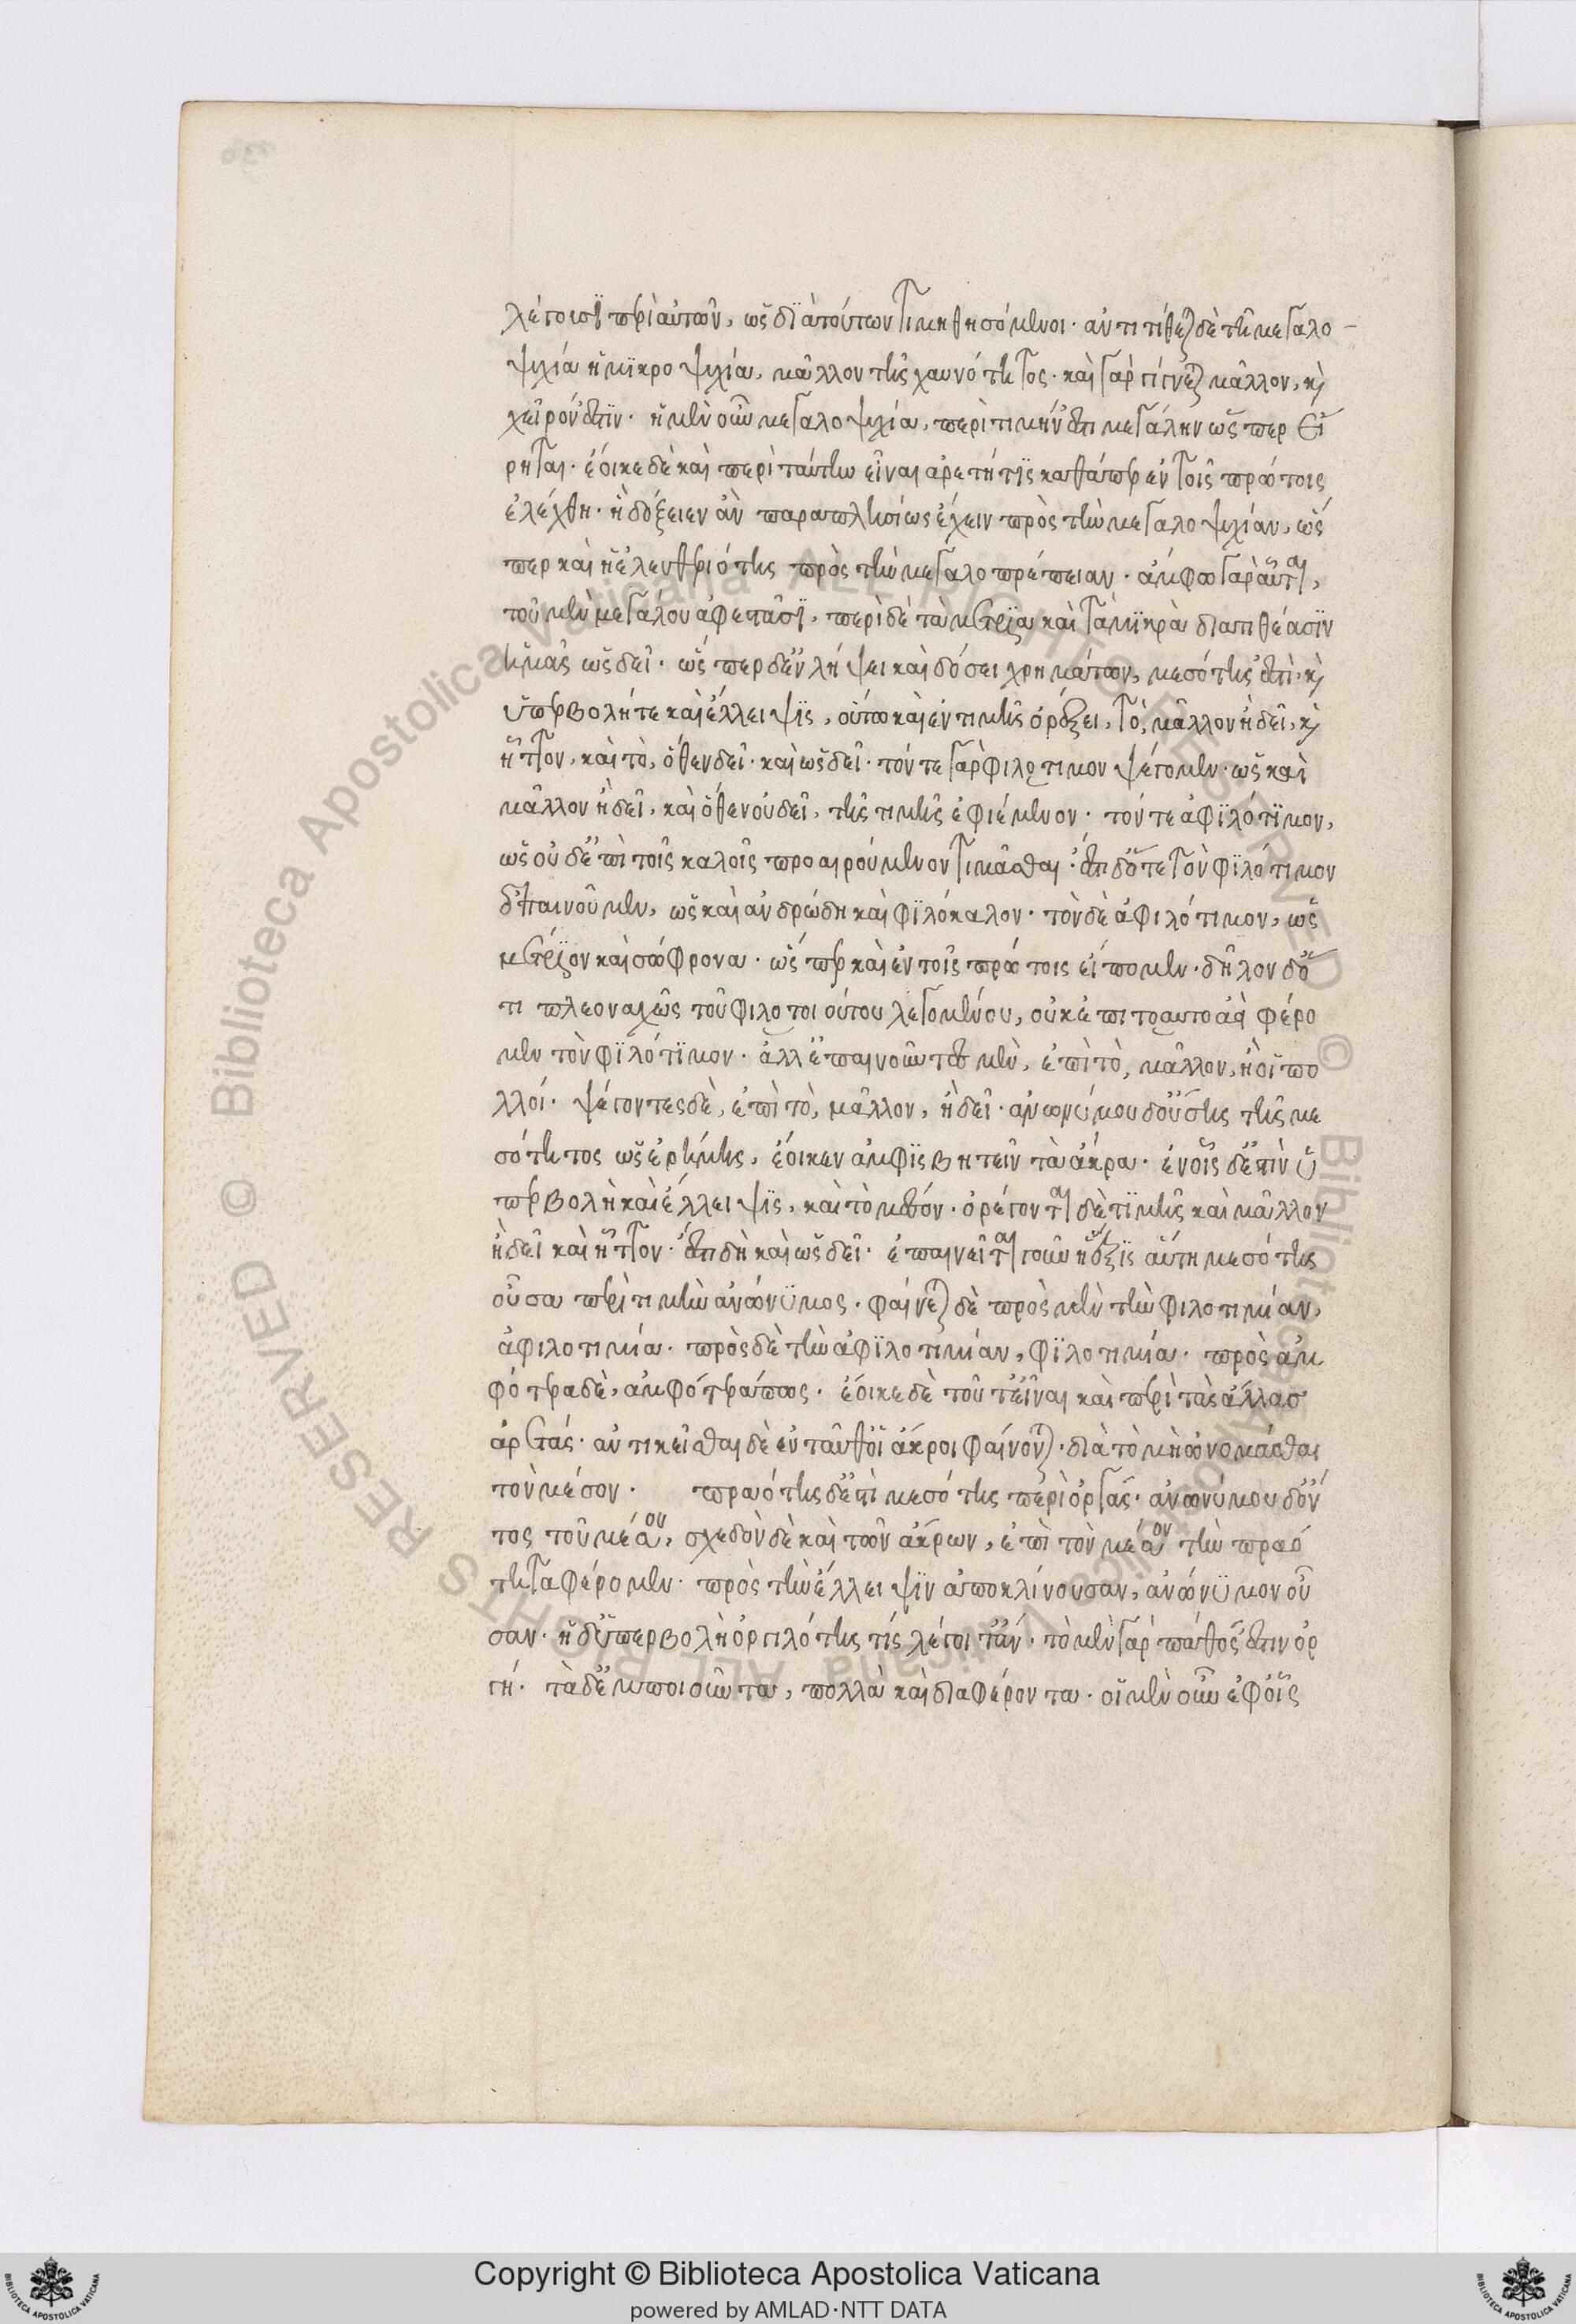 λέγουσι περὶ αὐτῶν, ὡς διὰ τούτων τιμηθησόμενοι· ἀντιτίθεται δὲ τῆ μεγαλο-
ψυχία ἡ μικροψυχία, μᾶλλον τῆς χαυνότητος· καὶ γὰρ γίγνεται μᾶλλον, καὶ
χεῖρόν ἐστιν· ἡ μὲν οὖν μεγαλοψυχία, περὶ τιμήν ἐστι μεγάλην ὥσπερ εἴ
ρηται· ἔοικε δὲ καὶ περὶ ταύτην εἶναι ἀρετή τις καθάπερ ἐν τοῖς πρώτοις
ἐλέχθη· ἣ δόξειεν ἂν παραπλησίως ἔχειν πρὸς τὴν μεγαλοψυχίαν, ὥς
περ καὶ ἡ ἐλευθεριότης πρὸς τὴν μεγαλοπρέπειαν· ἄμφω γὰρ αὗται,
τοῦ μὲν μεγάλου ἀφεστᾶσι, περὶ δὲ τὰ μέτρια καὶ τὰ μικρὰ διατιθέασιν
ἡμᾶς ὡς δεῖ· ὥσπερ δ' ἐν λήψει καὶ δόσει χρημάτων, μεσότης ἐστὶ· καὶ
ὑπερβολή τε καὶ ἔλλειψις, οὕτω καὶ ἐν τιμῆς ὀρέξει, τὸ, μᾶλλον ἢ δεῖ, καὶ
ἧττον, καὶ τὸ, ὅθεν δεῖ· καὶ ὡς δεῖ· τόν τε γὰρ φιλότιμον ψέγομεν· ὡς καὶ
μᾶλλον ἢ δεῖ, καὶ ὅθεν οὐ δεῖ, τῆς τιμῆς ἐφιέμενον· τόν τε ἀφιλότιμον,
ὡς οὐδ' ἐπὶ τοῖς καλοῖς προαιρούμενον τιμᾶσθαι· ἔστι δ' ὅτε τὸν φιλότιμον
δ' ἐπαινοῦμεν, ὡς καὶ ἀνδρώδη καὶ φιλόκαλον· τὸν δὲ ἀφιλότιμον, ὡς
μέτριον καὶ σώφρονα· ὥσπερ καὶ ἐν τοῖς πρώτοις εἴπομεν· δῆλον δ' ὅ
τι πλεοναχῶς τοῦ φιλοτοιούτου λεγομένου, οὐκ ἐπὶ τὸ αυτὸ ἀεὶ φέρο
μεν τὸν φιλότιμον· ἀλλ' ἐπαινοῦντες μὲν, ἐπὶ τὸ, μᾶλλον, ἢ οἱ πο
λλοί· ψέγοντες δὲ, ἐπὶ τὸ, μᾶλλον, ἢ δεῖ· ἀνωνύμου δ' οὔσης τῆς με
σότητος ὡς ἐρήμης, ἔοικεν ἀμφισβητεῖν τὰ ἄκρα· ἐν οἷς δ' ἐστὶν ὑ
περβολὴ καὶ ἔλλειψις, καὶ τὸ μέσον· ὀρέγονται δὲ τιμῆς καὶ μᾶλλον
ἢ δεῖ καὶ ἧττον· ἔστι δὴ καὶ ὡς δεῖ· ἐπαινεῖται γοῦν ἡ ἕξις αὕτη μεσότης
οὖσα περὶ τιμὴν ἀνώνυμος· φαίνεται δὲ πρὸς μὲν τὴν φιλοτιμίαν,
ἀφιλοτιμία· πρὸς δὲ τὴν ἀφιλοτιμίαν, φιλοτιμία· πρὸς ἀμ
φότερα δὲ, ἀμφότερά πως· ἔοικε δὲ τοῦτ' εἶναι καὶ περὶ τὰς ἄλλας
ἀρετάς· ἀντικεῖσθαι δὲ ἐνταῦθ' οἱ ἄκροι φαίνονται· διὰ τὸ μὴ ὠνομάσθαι
τὸν μέσον· πραότης δ' ἐστὶ μεσότης περὶ ὀργάς· ἀνωνύμου δ' ὄν
τος τοῦ μέσου, σχεδὸν δὲ καὶ τῶν ἄκρων, ἐπὶ τὸν μέσον τὴν πραό
τητα φέρομεν· πρὸς τὴν ἔλλειψιν ἀποκλίνουσαν, ἀνώνυμον οὖ
σαν· ἡ δ' ὑπερβολὴ ὀργιλότης τίς λέγοιτ' ἄν· τὸ μὲν γὰρ πάθος ἐστιν ὀρ
γή· τὰ δ' ἐμποιοῦντα, πολλὰ καὶ διαφέροντα· οἱ μὲν οὖν ἐφ' οἷς